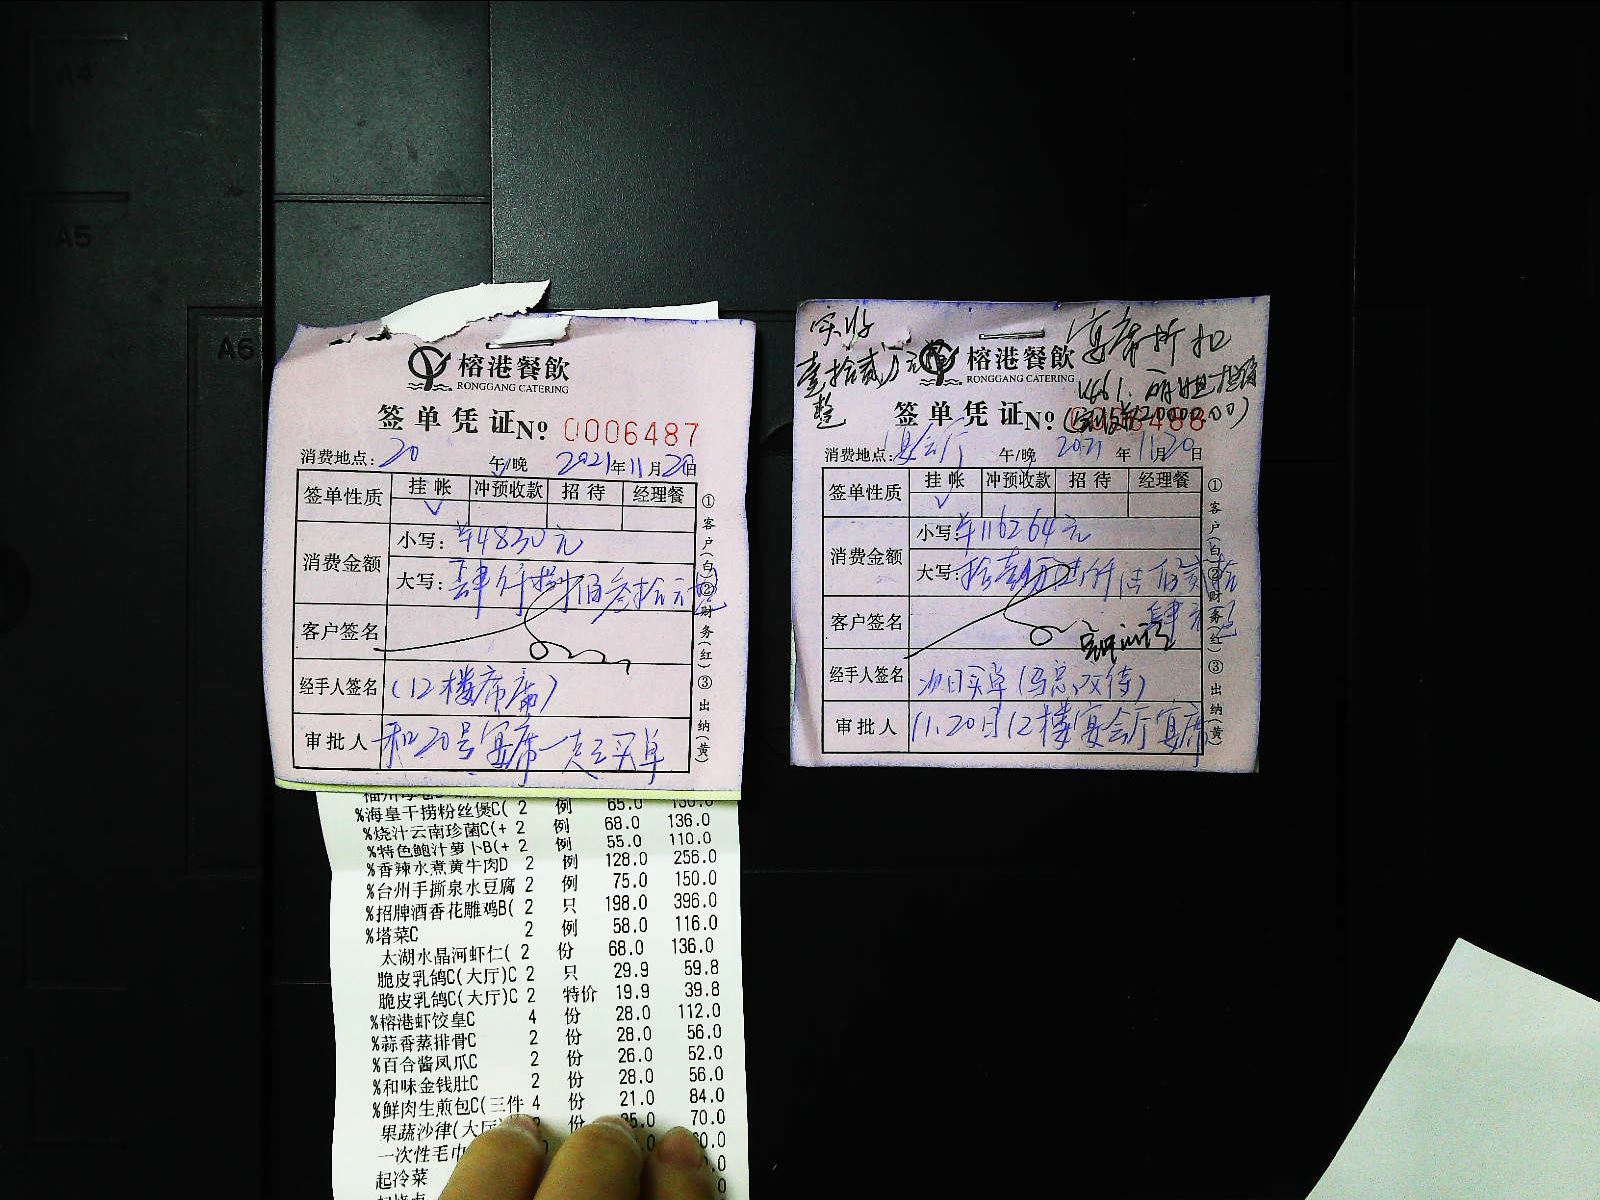 A4
A5
A6
榕港餐飲
RONGGANG CATERING
签单凭证No 0006487
消费地点：20 午/晚 2021年11月20日
签单性质 挂帐 冲预收款 招待 经理餐
消费金额
小写：¥4830元
大写：肆仟捌佰叁拾元整
客户签名
经手人签名 (12楼席席)
审批人 和20号宴席一起买单
①客户(白)②财务(红)③出纳(黄)
%海皇干捞粉丝煲C( 2 例 65.0 130.0
%烧汁云南珍菌C(+ 2 例 68.0 136.0
%特色鲍汁萝卜B(+ 2 例 55.0 110.0
%香辣水煮黄牛肉D 2 例 128.0 256.0
%台州手撕泉水豆腐 2 例 75.0 150.0
%招牌酒香花雕鸡B( 2 只 198.0 396.0
%塔菜C 2 例 58.0 116.0
太湖水晶河虾仁( 2 份 68.0 136.0
脆皮乳鸽C(大厅)C 2 只 29.9 59.8
脆皮乳鸽C(大厅)C 2 特价 19.9 39.8
%榕港虾饺皇C 4 份 28.0 112.0
%蒜香蒸排骨C 2 份 28.0 56.0
%百合酱凤爪C 2 份 26.0 52.0
%和味金钱肚C 2 份 28.0 56.0
%鲜肉生煎包C(三件 4 份 21.0 84.0
果蔬沙律(大厅) 70.0
一次性毛巾
起冷菜
实收
壹拾贰万元
整
宴席折扣
榕港餐飲
RONGGANG CATERING
签单凭证No 0006488
消费地点：宴会厅 午/晚 2021年11月20日
签单性质 挂帐 冲预收款 招待 经理餐
消费金额
小写：¥116264元
大写：拾壹万陆仟 佰 拾
肆元
客户签名
经手人签名 次日买单(马总 待)
审批人 11.20日12楼宴会厅宴席
①客户(白)②财务(红)③出纳(黄)